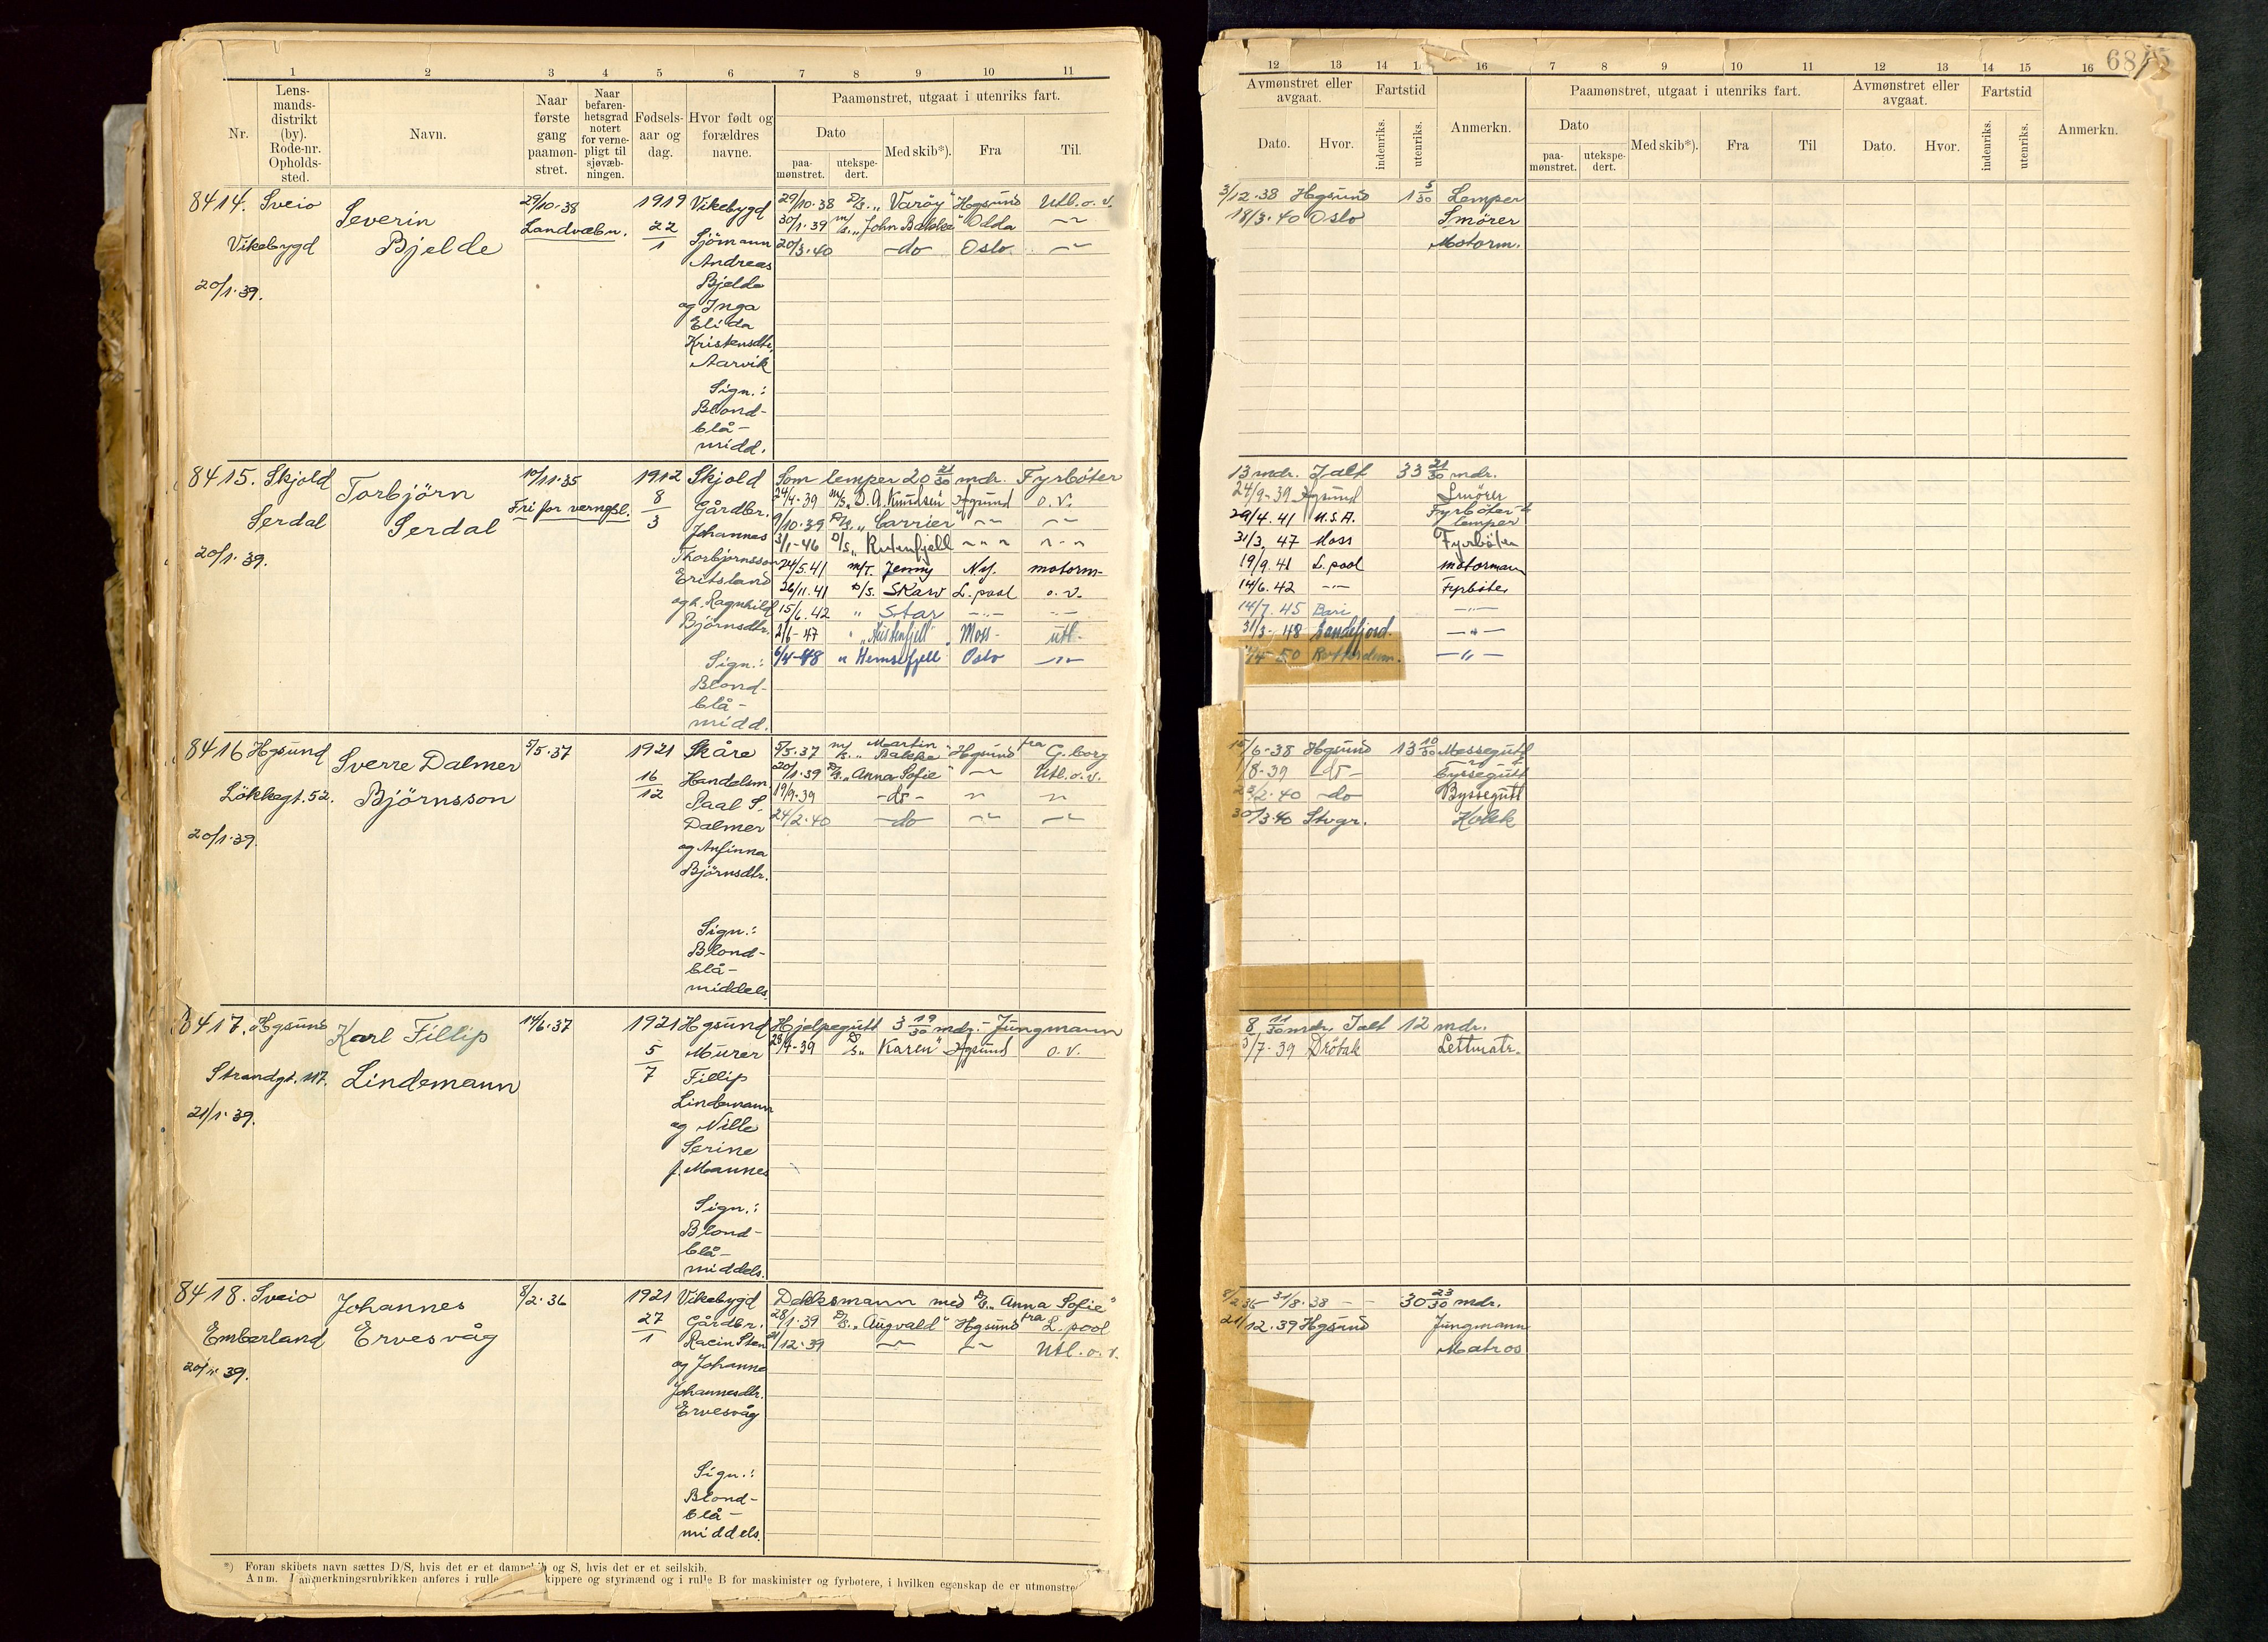 1 2 3 4 5 6 7 8 9 10 11
Nr.
Lens-
mands-
distrikt
(by).
Rode-nr.
Opholds-
sted.
Navn.
Naar
første
gang
paamøn-
stret.
Naar
befaren-
hetsgrad
notert
for verne-
pligt til
sjøvæb-
ningen.
Fødsels-
aar og
dag.
Hvor født og
forældres
navne.
Paamønstret, utgaat i utenriks fart.
Dato
paa-
mønstret.
utekspe-
dert.
Med skib*).
Fra
Til.
8414. Sveio
Vikebygd
20/1.39.
Severin
Bjelde
29/10.38
Landvæbn.
1919
22
1
Vikebygd
Sjömann
Andreas
Bjelde
og Inga
Elida
Kristensdtr.
Aarvik
Sign.:
Blond-
blå-
midd.
29/10.38 D/S. „Varöy" Hgsund Utl. o. v.
30/1.39 m/s. „John Bakke" Odda -"-
20/3.40 -do- Oslo. -"-
8415. Skjold
Serdal
20/1.39.
Torbjörn
Serdal
10/11.35
Fri for vernepl.
1912
8
3
Skjold
Gårdbr.
Johannes
Thorbjørnsson
Eritsland
og h. Ragnhild
Björnsdtr.
Sign.:
Blond-
blå-
midd.
Som lemper 20 21/30 mdr. Fyrböter
24/4-39 m/s „D. A. Knudsen" Hgsund o. v.
9/10.39 D/S. „Carrier" -"- -"-
3/1-46 D/S. „Rutenfjell -"- -"-
24/5.41 m/T. Jenny N.y. motorm-
26/11.41 D/S. Skarv L. pool o. v.
15/6.42 " Star -"- -"-
2/6-47 " Moss- utl-
6/4-48 " Hemsefjell Oslo -"-
8416 Hgsund
Lökkegt. 52.
20/1.39.
Sverre Dalmer
Björnsson
5/5.37
1921
16
12
Skåre
Handelsm.
Paal S.
Dalmer
og Anfinna
Björnsdtr.
Sign.:
Blond-
blå-
middels.
5/5.37 m/s. „Martin Bakke" Hgsund fra G. borg
20/1.39 D/S. „Anna Sofie" -"- Utl. o. v.
19/9.39 -do- -"- -"-
24/2.40 -do- -"- -"-
8417. Hgsund
Strandgt. 117.
21/1.39.
Karl Fillip
Lindemann
14/6.37
1921
5
7
Hgsund
Murer
Fillip
Lindemann
og Nille
Serine
f. Mannes
Sign.:
Blond-
blå-
middels.
Hjelpegutt 3 19/30 mdr. - Jungmann
28/4-39 D/S. „Karen" Hgsund o. v.
8418. Sveio
Emberland
20/1.39.
Johannes
Ervesvåg
8/2.36
1921
27
1
Vikebygd
Gårdbr.
Racin Sten
og Johanna
Johannesdtr.
Ervesvåg
Sign.:
Blond-
blå-
middels.
Dekksmann med D/S. „Anna Sofie"
28/1.39 D/S. „Augvald" Hgsund fra L. pool
21/12.39 -"- -"- Utl. o. v.
*) Foran skibets navn sættes D/S, hvis det er et dampskib og S, hvis det er et seilskib.
Anm. I anmerkningsrubrikken anføres i rulle kippere og styrmænd og i rulle B for maskinister og fyrbøtere, i hvilken egenskap de er utmønstre
68
12 13 14 16 7 8 9 10 11 12 13 14 15 16
Avmønstret eller
avgaat.
Dato. Hvor.
Fartstid
indenriks.
utenriks.
Anmerkn.
Paamønstret, utgaat i utenriks fart.
Dato
paa-
mønstret.
utekspe-
dert.
Med skib*).
Fra
Til
Avmønstret eller
avgaat.
Dato. Hvor.
Fartstid
indenriks.
utenriks.
Anmerkn.
3/12.38 Hgsund 1 5/30 Lemper
18/3.40 Oslo Smörer
Motorm.
13 mdr. Ialt 33 21/30 mdr.
24/9-39 Hgsund Smörer
29/4.41 U.S.A. Fyrböter & lemper
31/3.47 Moss Fyrböter
19/9.41 L. pool motorman
14/6.42 -"- Fyrböter
14/7.45 Bari -"-
31/3-48 Sandefjord. -"-
/4-50 Rotterdam. -"-
15/6-38 Hgsund 13 10/30 Messegutt
/8-39 -do- Byssegutt
/2.40 -do- Byssegutt
30/3.40 Stvgr. Kokk
8 11/30 mdr. Ialt 12 mdr.
5/7.39 Dröbak Lettmatr.
8/2.36 - 31/8.38 - - 30 23/30 mdr.
21/12.39 Hgsund Jungmann
Matros